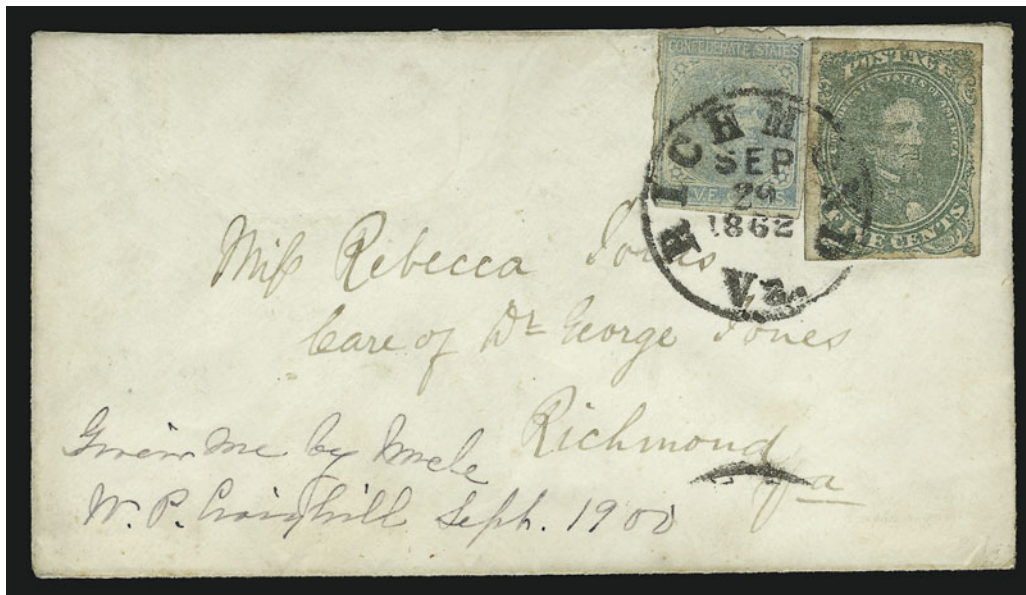 CONFEDERATE STATES
POSTAGE
CONFEDERATE STATES OF AMERICA
FIVE CENTS
RICHMOND
SEP
29
1862
Va.
Miss Rebecca Jones
Care of Dr George Jones
Richmond
Va
Given me by Uncle
W. P. Craighill Sept. 1900